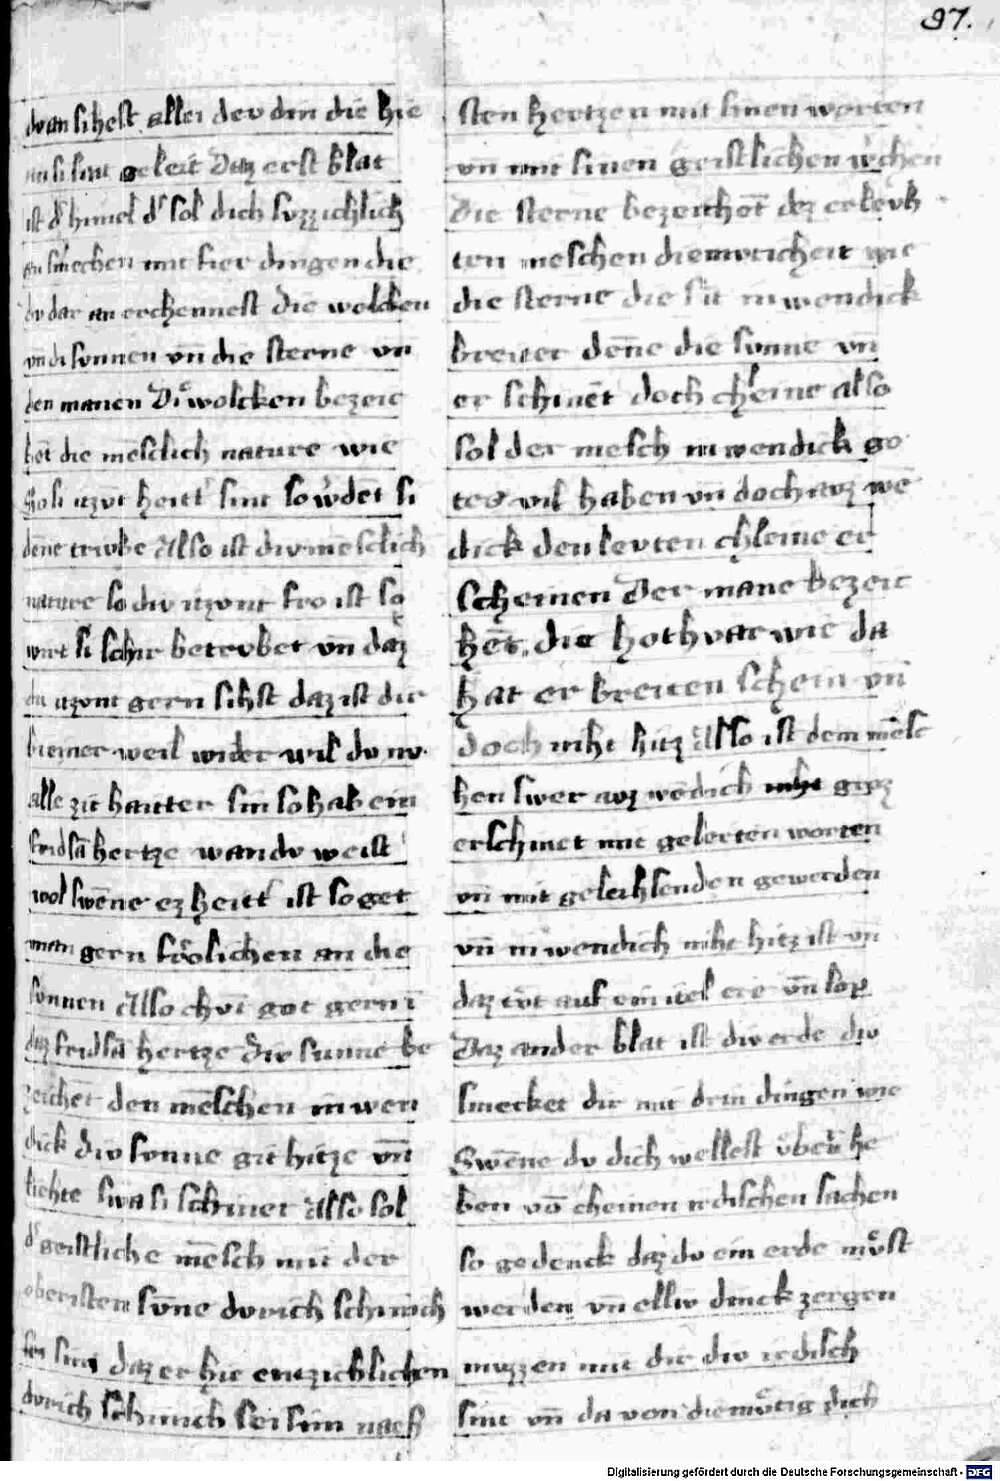 97.
du an sihest allei der din die hie
an si sint geleit Daz erst blat
ist d' himel d' sol dich svzzichlich
an smechen mit fier dingen die
dv dar an erchennest die wolcken
vn̄ di svnnen vn̄ die sterne vn̄
den manen Di wolcken bezeic
het die mēsclich nature wie
si itzvt heitt' sint so w'dēt si
dēne trvbe Also ist div mēsclich
nature so div itzvnt fro ist so
wirt si schir betrvbet vn̄ daz
du itzvnt gern sihst daz ist dir
in einer weil wider wil dv nv
alle zit haitter sin so hab ein
fridsā hertze wan dv weist
wol swēne ez heitt' ist so get
man gern frolichen an die
svnnen Also chvt got gern ī
daz fridsā hertze Div sunne be
zeichēt den mēschen in wen
dick div svnne git hitze vn̄
liehte swa si schinet Also sol
d' geistliche mēsch mit der
obersten svne dvrich schinich
sin daz er hie entzichlichen
dvrich schinich sei sim nach
sten hertzen mit sinen worten
vn̄ mit sinen geistlichen w'chen
Die sterne bezeichēt dez erlevh
ten meschen diemvticheit wie
die sterne die sit in wendick
breiter dēne die svnne vn̄
er schinēt doch chleine also
sol der mesch in wendick go
tes wil haben vn̄ doch avz wē
dick den levten chleine er
scheinen Der mane bezeic
hēt die hochvart wie da
hat er breiten schein vn̄
doch niht hitz Also ist dem mēsc
hen swer avz wēdich niht groz
erschinet mit gelerten worten
vn̄ mit geleichsenden gewerden
vn̄ in wendich niht hitz ist vn̄
daz tvt auf ein itel ere vn̄ lop
Daz ander blat ist div erde div
smecket dir mit drin dingen wie
Swēne dv dich wellest vber he
ben vō cheinen irdischen sachen
so gedenck daz dv ein erde mvst
werden vn̄ elliv dinck zergen
mvzzen mit dir div irdisch
sint vn̄ da von diemvtig dich